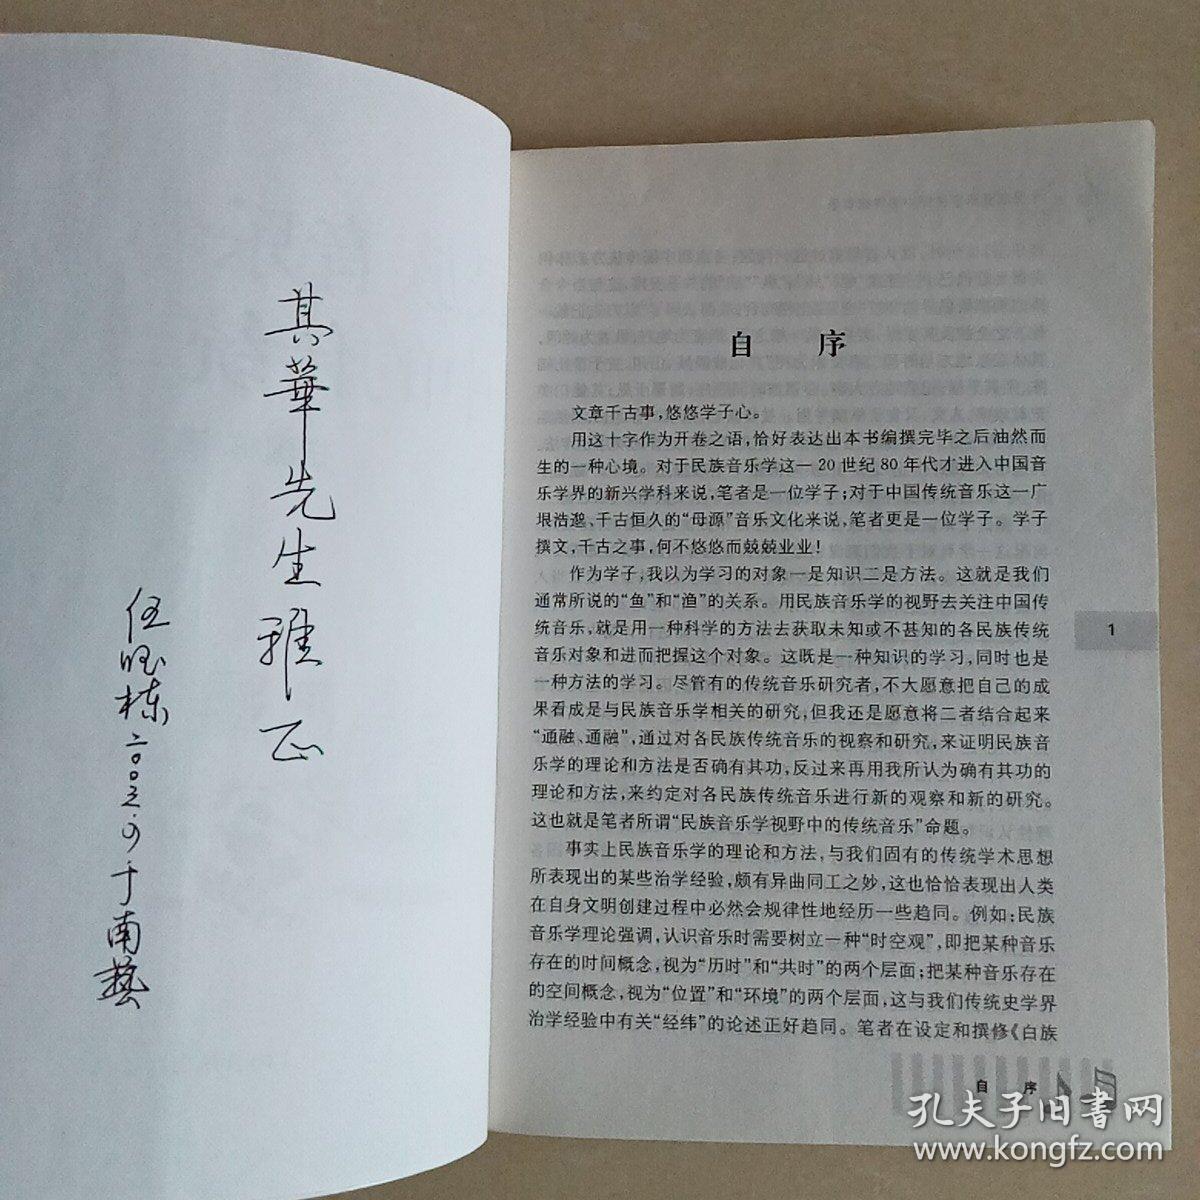 其華先生雅正
伍國棟 二〇〇三·夕 于南藝
自 序
文章千古事，悠悠学子心。
用这十字作为开卷之语，恰好表达出本书编撰完毕之后油然而
生的一种心境。对于民族音乐学这一20世纪80年代才进入中国音
乐学界的新兴学科来说，笔者是一位学子；对于中国传统音乐这一广
垠浩邈、千古恒久的“母源”音乐文化来说，笔者更是一位学子。学子
撰文，千古之事，何不悠悠而兢兢业业！
作为学子，我以为学习的对象一是知识二是方法。这就是我们
通常所说的“鱼”和“渔”的关系。用民族音乐学的视野去关注中国传
统音乐，就是用一种科学的方法去获取未知或不甚知的各民族传统
音乐对象和进而把握这个对象。这既是一种知识的学习，同时也是
一种方法的学习。尽管有的传统音乐研究者，不大愿意把自己的成
果看成是与民族音乐学相关的研究，但我还是愿意将二者结合起来
“通融、通融”，通过对各民族传统音乐的视察和研究，来证明民族音
乐学的理论和方法是否确有其功，反过来再用我所认为确有其功的
理论和方法，来约定对各民族传统音乐进行新的观察和新的研究。
这也就是笔者所谓“民族音乐学视野中的传统音乐”命题。
事实上民族音乐学的理论和方法，与我们固有的传统学术思想
所表现出的某些治学经验，颇有异曲同工之妙，这也恰恰表现出人类
在自身文明创建过程中必然会规律性地经历一些趋同。例如：民族
音乐学理论强调，认识音乐时需要树立一种“时空观”，即把某种音乐
存在的时间概念，视为“历时”和“共时”的两个层面；把某种音乐存在
的空间概念，视为“位置”和“环境”的两个层面，这与我们传统史学界
治学经验中有关“经纬”的论述正好趋同。笔者在设定和撰修《白族
1
自 序
孔夫子旧书网
www.kongfz.com